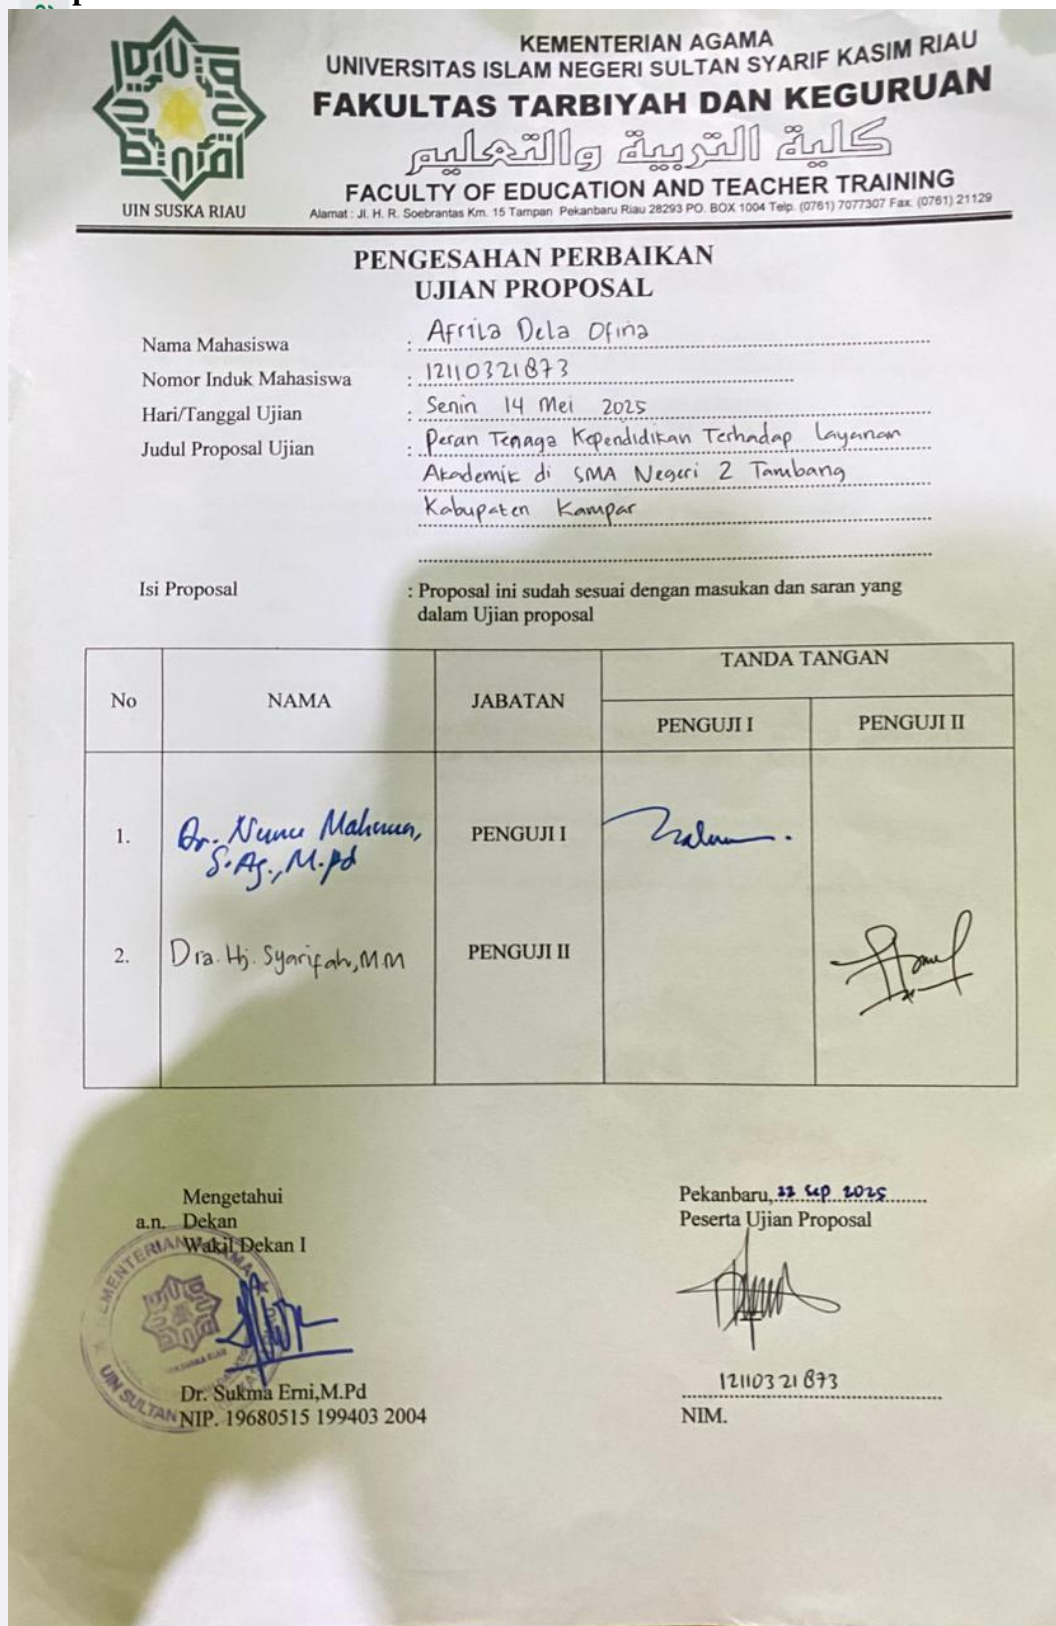 KEMENTERIAN AGAMA
UNIVERSITAS ISLAM NEGERI SULTAN SYARIF KASIM RIAU
FAKULTAS TARBIYAH DAN KEGURUAN
كلية التربية والتعليم
FACULTY OF EDUCATION AND TEACHER TRAINING
Alamat : Jl. H. R. Soebrantas Km. 15 Tampan Pekanbaru Riau 28293 PO. BOX 1004 Telp. (0761) 7077307 Fax. (0761) 21129
UIN SUSKA RIAU
PENGESAHAN PERBAIKAN
UJIAN PROPOSAL
Nama Mahasiswa : Afrila Dela Ofina
Nomor Induk Mahasiswa : 12110321873
Hari/Tanggal Ujian : Senin 14 Mei 2025
Judul Proposal Ujian : Peran Tenaga Kependidikan Terhadap Layanan
Akademik di SMA Negeri 2 Tambang
Kabupaten Kampar
Isi Proposal : Proposal ini sudah sesuai dengan masukan dan saran yang
dalam Ujian proposal
No NAMA JABATAN TANDA TANGAN
PENGUJI I PENGUJI II
1. Dr. Nunu Mahnun, S.Ag., M.pd PENGUJI I
2. Dra. Hj. Syarifah, MM PENGUJI II
Mengetahui
a.n. Dekan
Wakil Dekan I
Dr. Sukma Erni,M.Pd
NIP. 19680515 199403 2004
Pekanbaru, 22 Sep 2025
Peserta Ujian Proposal
12110321873
NIM.